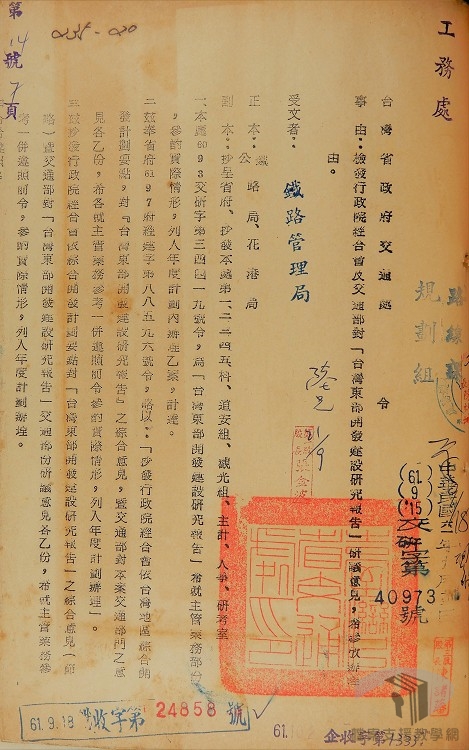 工務處
台灣省政府交通處 令
中華民國六十一年九月
(61.9.15)交研字第40973號
事由：檢發行政院經合會及交通部對「台灣東部開發建設研究報告」研議意見，希參攷辦理
由。
受文者：鐵路管理局
正本：鐵路局、花港局
公
副本：抄呈省府、抄發本處第一、二、三、四、五科、道安組、觀光組、主計、人事、研考室
一、本處6093交研字第三四四一九號令，局「台灣東部開發建設研究報告」希就主管業務部份
，參酌實際情形，列入年度計劃內辦理乙案，計達。
二、茲奉省府6197府經建字第八八五九六號令，略以：「抄發行政院經合會依台灣地區綜合開
發計劃要點，對「台灣東部開發建設研究報告」之綜合意見，暨交通部對本案交通部門之意
見各乙份，希各就主管業務參考一併遵照前令參酌實際情形，列入年度計劃辦理」。
三、茲抄發行政院經合會依綜合開發計劃要點對「台灣東部開發建設研究報告」之綜合意見（節
略）暨交通部對「台灣東部開發建設研究報告」交通部份研議意見各乙份，希就主管業務參
考一併遵照前令，參酌實際情形，列入年度計劃辦理。
第14號7頁
235-20
規劃組
21/9
61.9.18 收字第24858號
61.10
企收字第